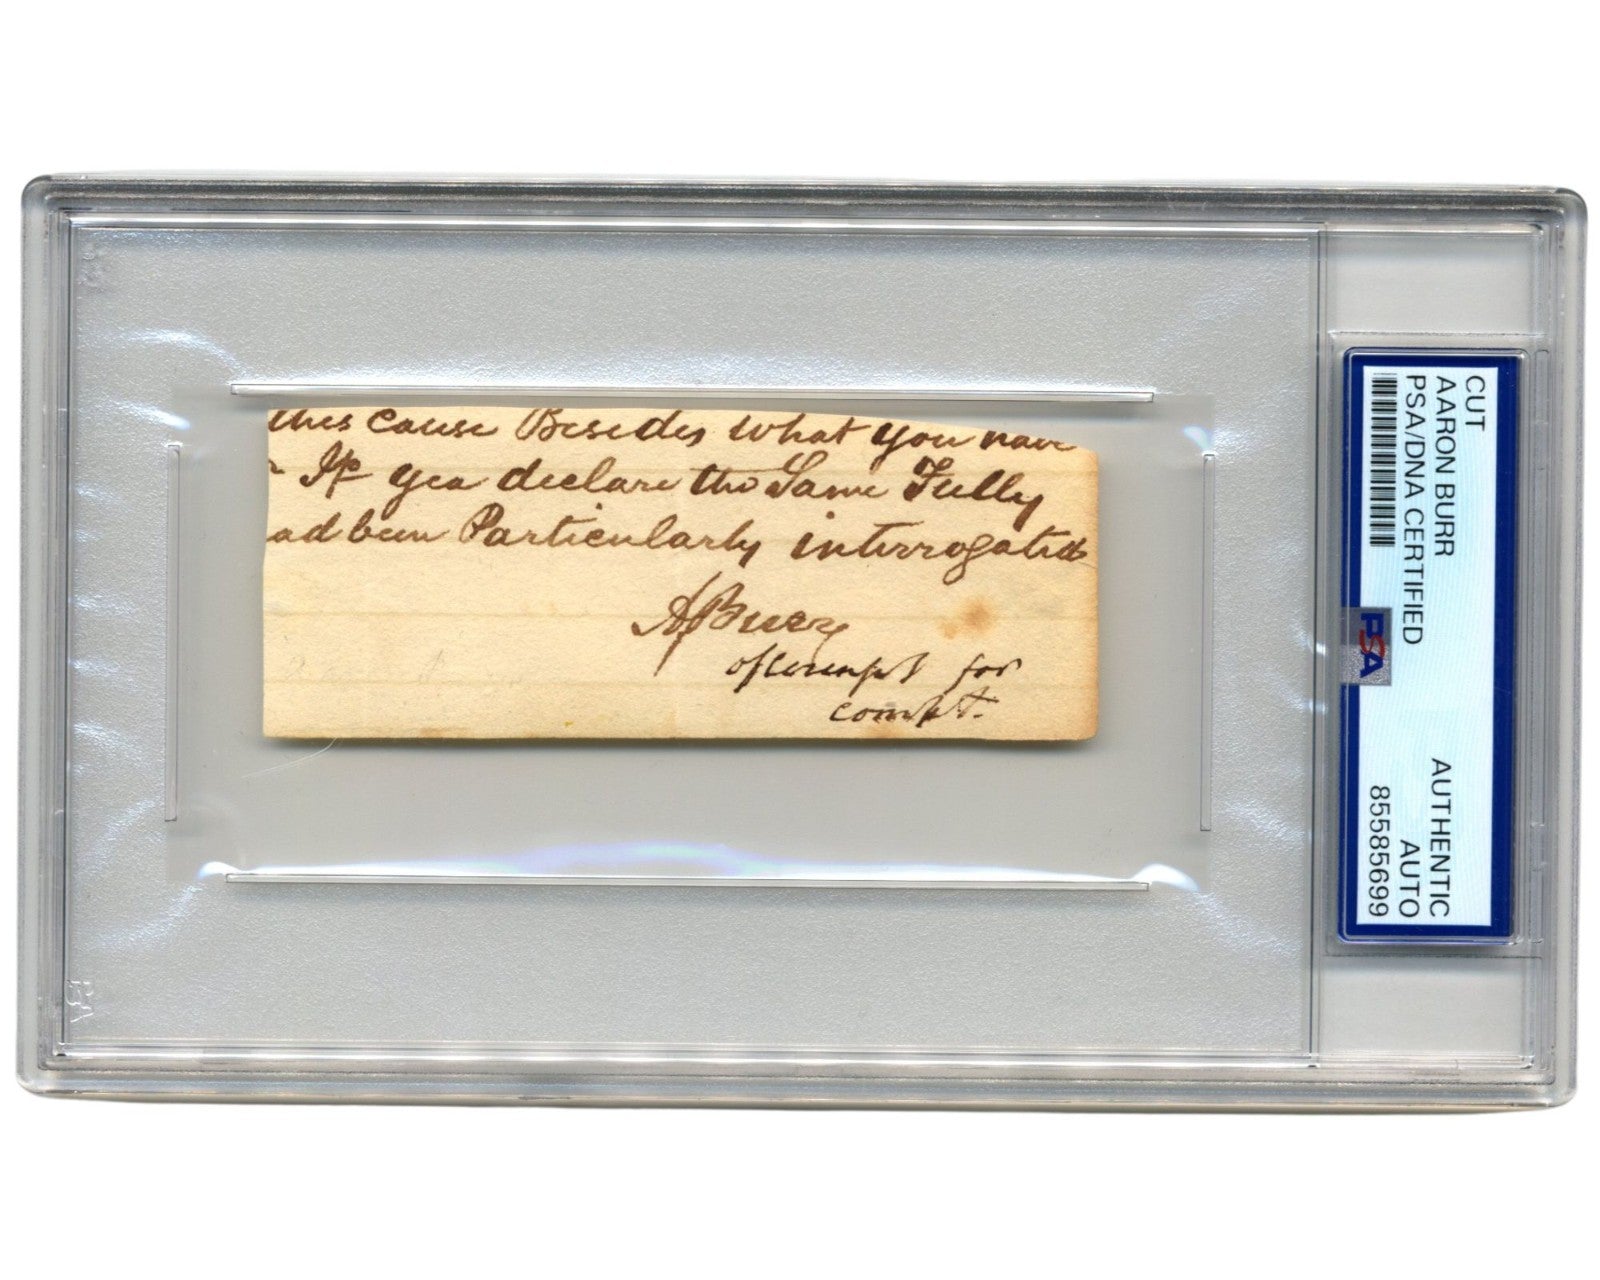 this cause Besides what you have
If yea declare the Same Fully
ad been Particularly interrogated
A Burr
of Counsel for
complt.
CUT
AARON BURR
PSA/DNA CERTIFIED
AUTHENTIC
AUTO
85585699
PSA